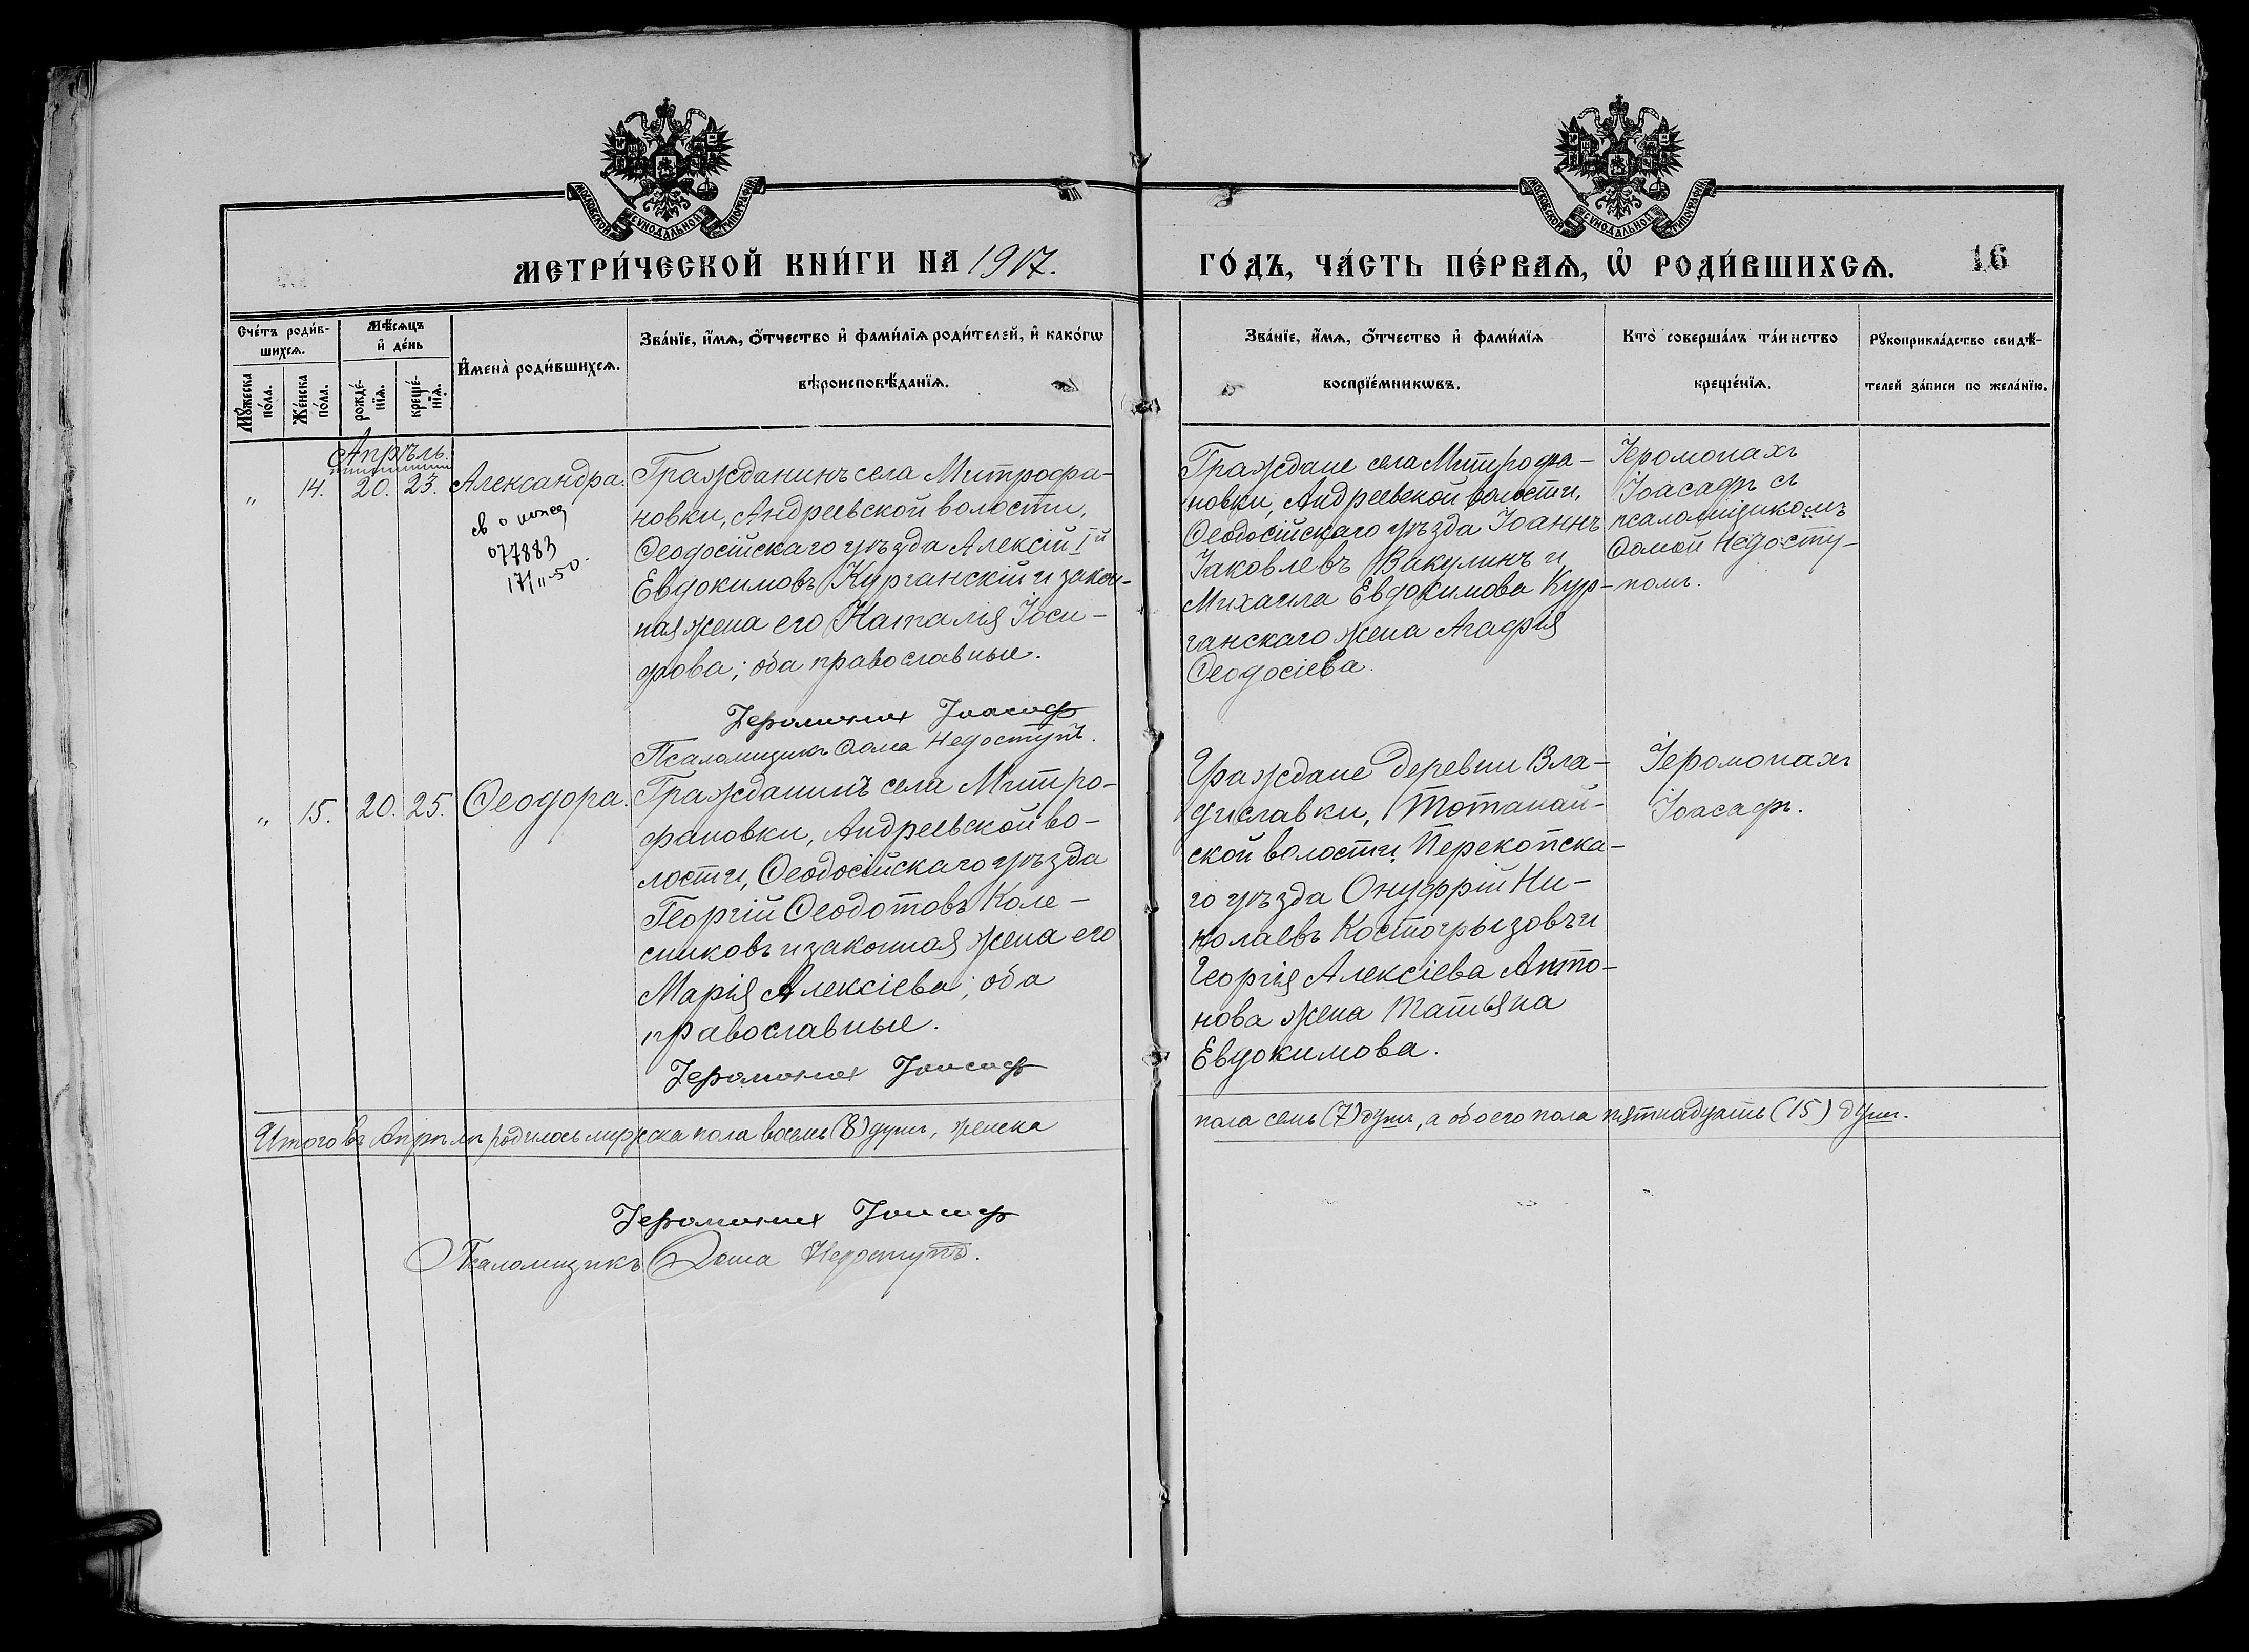 МОСКОВСКОЙ СУНОДАЛЬНОЙ ТИПОГРАФІИ
МОСКОВСКОЙ СУНОДАЛЬНОЙ ТИПОГРАФІИ
МЕТРИ́ЧЕСКОЙ КНИ́ГИ НА 1917.
ГО́ДЪ, ЧА́СТЬ ПЕ́РВАѦ, Ѡ҆ РОДИ́ВШИХСѦ.
16
Сче́тъ роди́в-
шихсѧ.
Мꙋ́жеска
по́ла.
Же́нска
по́ла.
Мѣ́сѧцъ
и҆ де́нь
рожде́-
нїѧ.
креще́-
нїѧ.
И҆мена̀ роди́вшихсѧ.
Зва́нїе, и҆́мѧ, ѻ҆́тчество и҆ фами́лїѧ роди́телей, и҆ како́гѡ
вѣроисповѣ́данїѧ.
Зва́нїе, и҆́мѧ, ѻ҆́тчество и҆ фами́лїѧ
воспрїе́мникѡвъ.
Кто̀ соверша́лъ та́инство
креще́нїѧ.
Рꙋкоприкла́дство свидѣ́-
телей за́писи по жела́нїю.
Апрѣль.
„ 14. 20. 23. Александра.
св о
077883
17/II-50.
Гражданинъ села Митрофа-
новки, Андреевской волости,
Ѳеодосійскаго уѣзда Алексій Iй
Евдокимовъ Курганскій и закон-
ная жена его Наталія Іоси-
фова; оба православные.
Іеромонах Іоасаф
Псаломщикъ Ѳома Недоступъ.
Граждане села Митрофа-
новки, Андреевской волости,
Ѳеодосійскаго уѣзда Іоаннъ
Іаковлевъ Викулинъ и
Михаила Евдокимова Кур-
ганскаго жена Агафія
Ѳеодосіева.
Іеромонахъ
Іоасафъ съ
псаломщикомъ
Ѳомой Недосту-
помъ.
„ 15. 20. 25. Ѳеодора.
Гражданинъ села Митро-
фановки, Андреевской во-
лости, Ѳеодосійскаго уѣзда
Георгій Ѳеодотовъ Коле-
сниковъ и законная жена его
Марія Алексіева; оба
православные.
Іеромонах Іоасаф
Граждане деревни Вла-
диславки, Тотанай-
ской волости, Перекопска-
го уѣзда Онуфрій Ни-
колаевъ Костогрызовъ и
Георгія Алексіева Анто-
нова жена Татьяна
Евдокимова.
Іеромонахъ
Іоасафъ.
Итого въ Апрѣлѣ родилось мужеска пола восемь (8) душъ, женска
пола семь (7) душъ, а обоего пола пятнадцать (15) душъ.
Іеромонах Іоасаф
Псаломщикъ Ѳома Недоступъ.